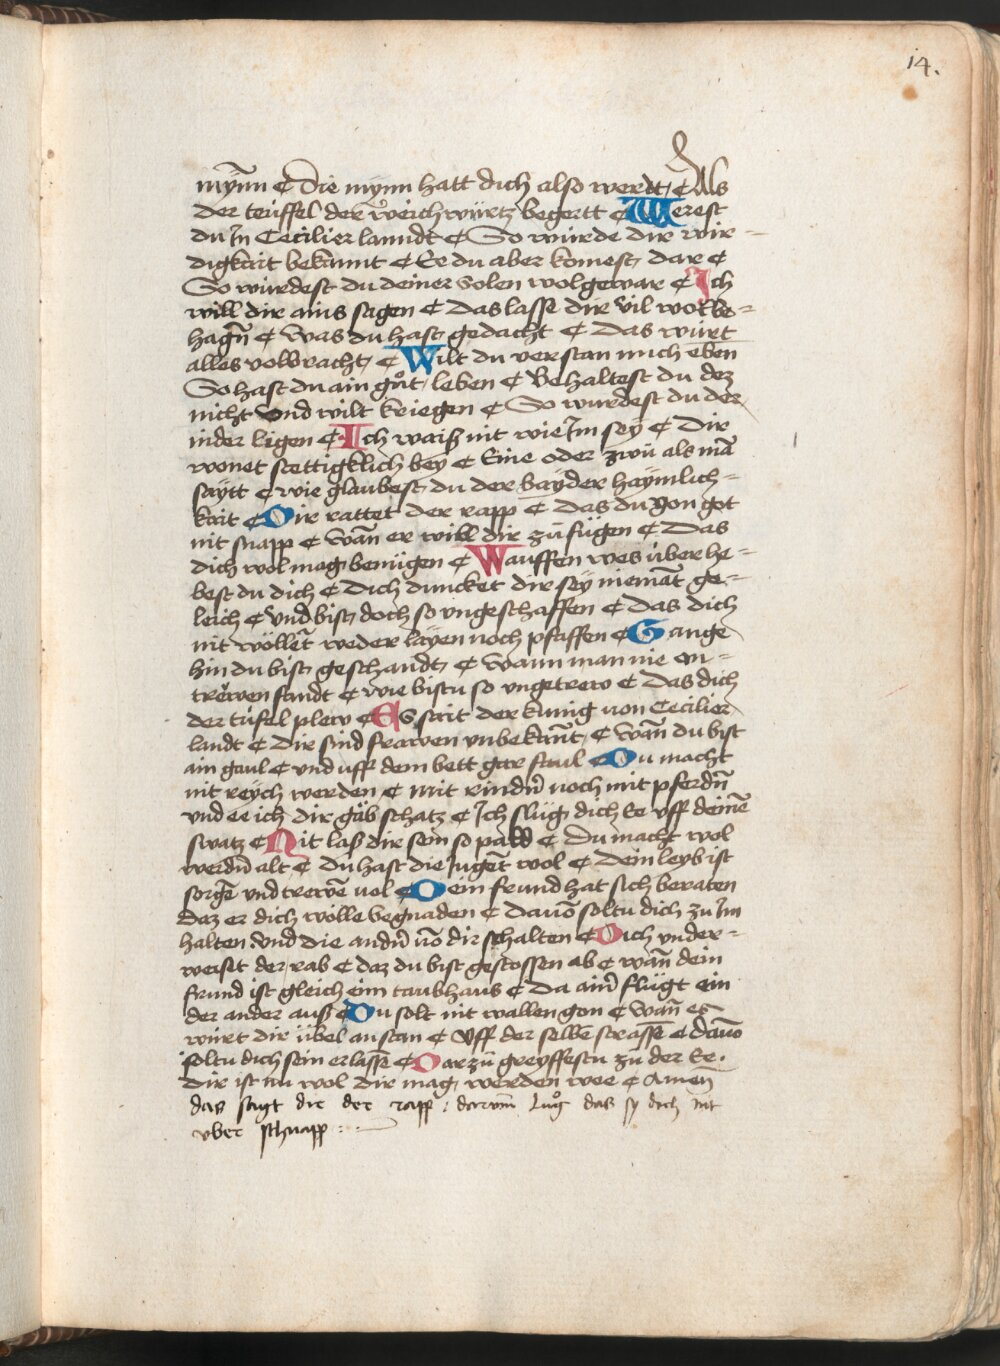 14.
mÿnn ¢ Die mynn hatt dich also werdt, ¢ Als
der teüffel der weichwürtz begertt ¢ Werest
du Jn Cecilier lanndt ¢ So würde dir wir=
digkait bekannt ¢ Ee du aber komest, dar ¢
So würdest du deiner volen wolgewar ¢ Jch
will dir ains sagen ¢ das lasse dir vil wol be=
hagn̄ ¢ Was du hast gedacht ¢ Das würt
alles volbracht, ¢ Wilt du verstan mich eben
So hast du ain gůt, leben ¢ Behaltest du dez
nicht vnd wilt kriegen ¢ So wurdest du der
nider ligen ¢ Ich waiß nit wie Jm seÿ ¢ Dir
wonet stettigklich beÿ ¢ Eine oder zwů als mā
saÿtt ¢ wie glaubest, du der baÿder haÿmlich=
kait ¢ Dir rattet der rapp ¢ das du von got
nit snapp ¢ wan̄ er will dir zů fügen ¢ Das
dich wol mag benügen ¢ Wauffen wes über he=
best du dich ¢ Dich duncket dir seÿ niemāt ge=
leich ¢ vnd bist, doch so vngeschaffen ¢ das dich
nit wöllet̄ weder laÿen noch pfaffen ¢ Gange
hin du bist, geschandt, ¢ wann man nie on=
trëwen fandt ¢ wie bistu so vngetrew ¢ das dich
der tüfel plew ¢ Es sait der kunig von Cecilier
landt ¢ Dir sind frawen vnbekan̄t, ¢ wan̄ du bist
ain gaul ¢ vnd uff dem bett gar faul ¢ Du macht
nit reÿch werden ¢ mit rindn̄ noch mit pferdn̄
vnd ee ich dir gäb schatz ¢ Jch slüg dich ee vff deinē
swatz ¢ Nit laß dir sein so pald ¢ Du macht wol
werdn̄ alt ¢ Du hast die Jugēt wol ¢ Dein leyb ist
sorgē vnd trewē vol ¢ Dein frund hat sich beraten
Daz er dich wölle begnaden ¢ dauō soltu dich zu Jm
halten vnd die andn̄ vō dir schalten ¢ Dich vnder=
weiset der rab ¢ daz du bist gestossen ab ¢ wan̄ dein
frund ist gleich eim taubhaus ¢ da ain̄ flügt ein
der ander auß ¢ Du solt nit wallen gon ¢ Wan̄ es
wirt dir übel anstan ¢ Vff der selbē strasse ¢ dauō
soltu dich sein erlassē ¢ Darzů greyffestu zu der Ee.
dir ist nu wol dir mag, werden wee ¢ Amen̄
das sagt dir der rapp : darum̄ lůg das sy dich nit
vber schnapp :